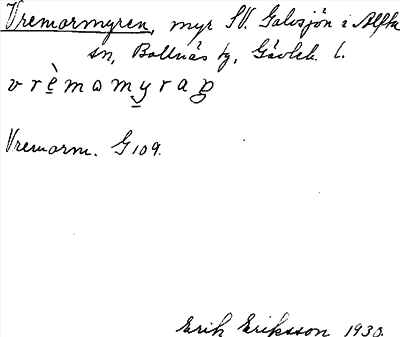 Vremormyren, myr SV. Galvsjön i Alfta
sn, Bollnäs tg, Gävleb. l.
vrèmomyraŋ
Vremorm. G 109.
Erik Eriksson 1930.